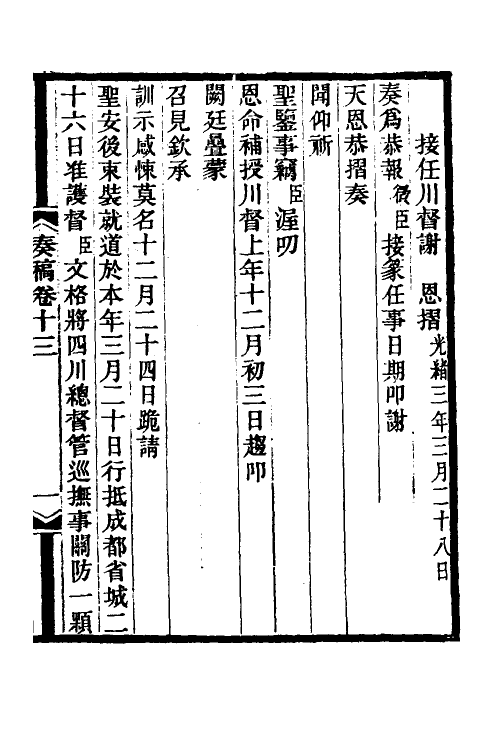 接任川督謝　恩摺光緒三年三月二十八日
奏爲恭報微臣接篆任事日期叩謝
天恩恭摺奏
聞仰祈
聖鑒事竊臣渥叨
恩命補授川督上年十二月初三日趨叩
闕廷疊蒙
召見欽承
訓示感悚莫名十二月二十四日跪請
聖安後束裝就道於本年三月二十日行抵成都省城二
十六日准護督臣文格將四川總督管巡撫事關防一顆
奏稿卷十三　一